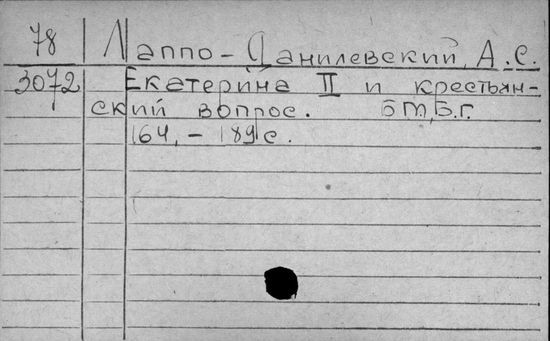 78 Лаппо-Данилевский, А.С.
3072 Екатерина II и крестьян-
ский вопрос. б.т., б.г.
164, - 189 с.